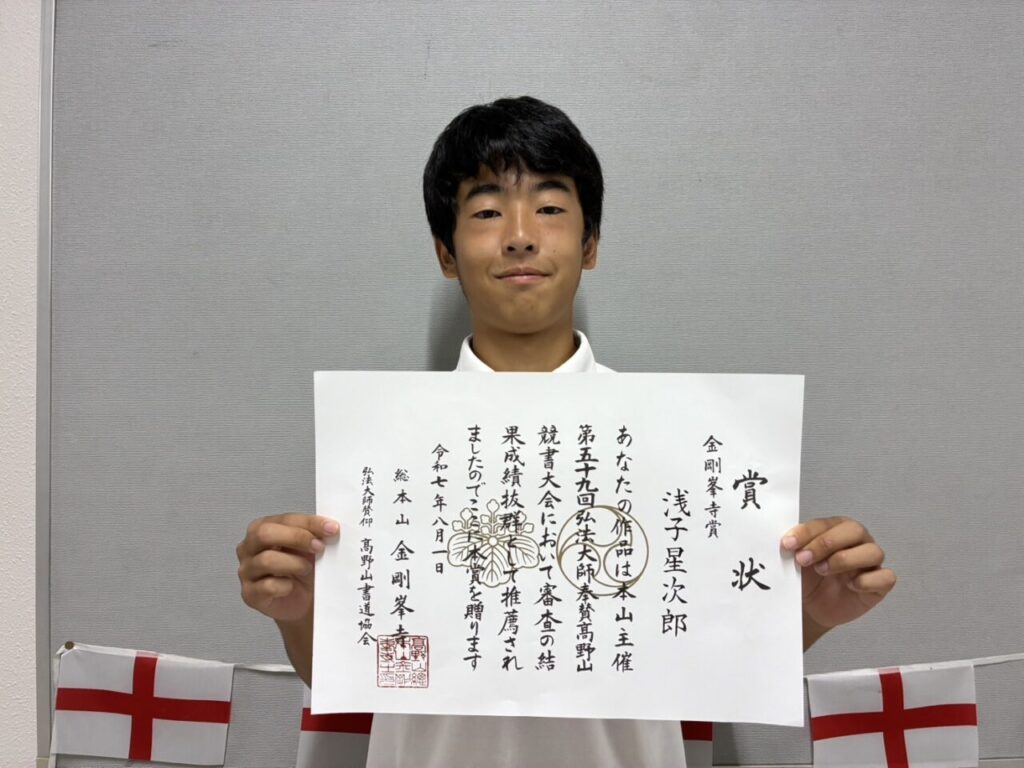 賞状
金剛峯寺賞
浅子星次郎
あなたの作品は本山主催
第五十九回弘法大師奉賛高野山
競書大会において審査の結
果成績抜群として推薦され
ましたのでここに本賞を贈ります
令和七年八月一日
総本山 金剛峯寺
弘法大師賛仰 高野山書道協会